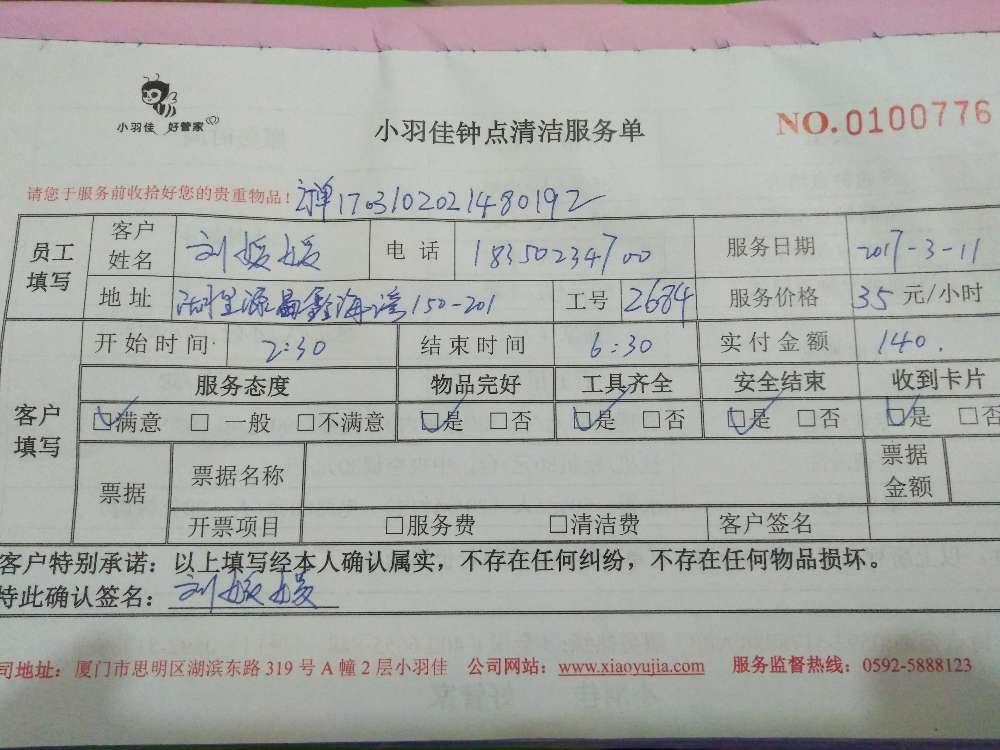 小羽佳 好管家
小羽佳钟点清洁服务单
NO.0100776
请您于服务前收拾好您的贵重物品！ 订单1703102021480192
员工填写 客户姓名 刘媛媛 电话 18350234700 服务日期 2017-3-11
地址 湖里源昌鑫海湾150-201 工号 2684 服务价格 35 元/小时
客户填写 开始时间 2:30 结束时间 6:30 实付金额 140.
服务态度 物品完好 工具齐全 安全结束 收到卡片
☑满意 □ 一般 □不满意 ☑是 □否 ☑是 □否 ☑是 □否 ☑是 □否
票据 票据名称 票据金额
开票项目 □服务费 □清洁费 客户签名
客户特别承诺：以上填写经本人确认属实，不存在任何纠纷，不存在任何物品损坏。
特此确认签名：刘媛媛
司地址：厦门市思明区湖滨东路 319 号 A 幢 2 层小羽佳 公司网站：www.xiaoyujia.com 服务监督热线：0592-5888123